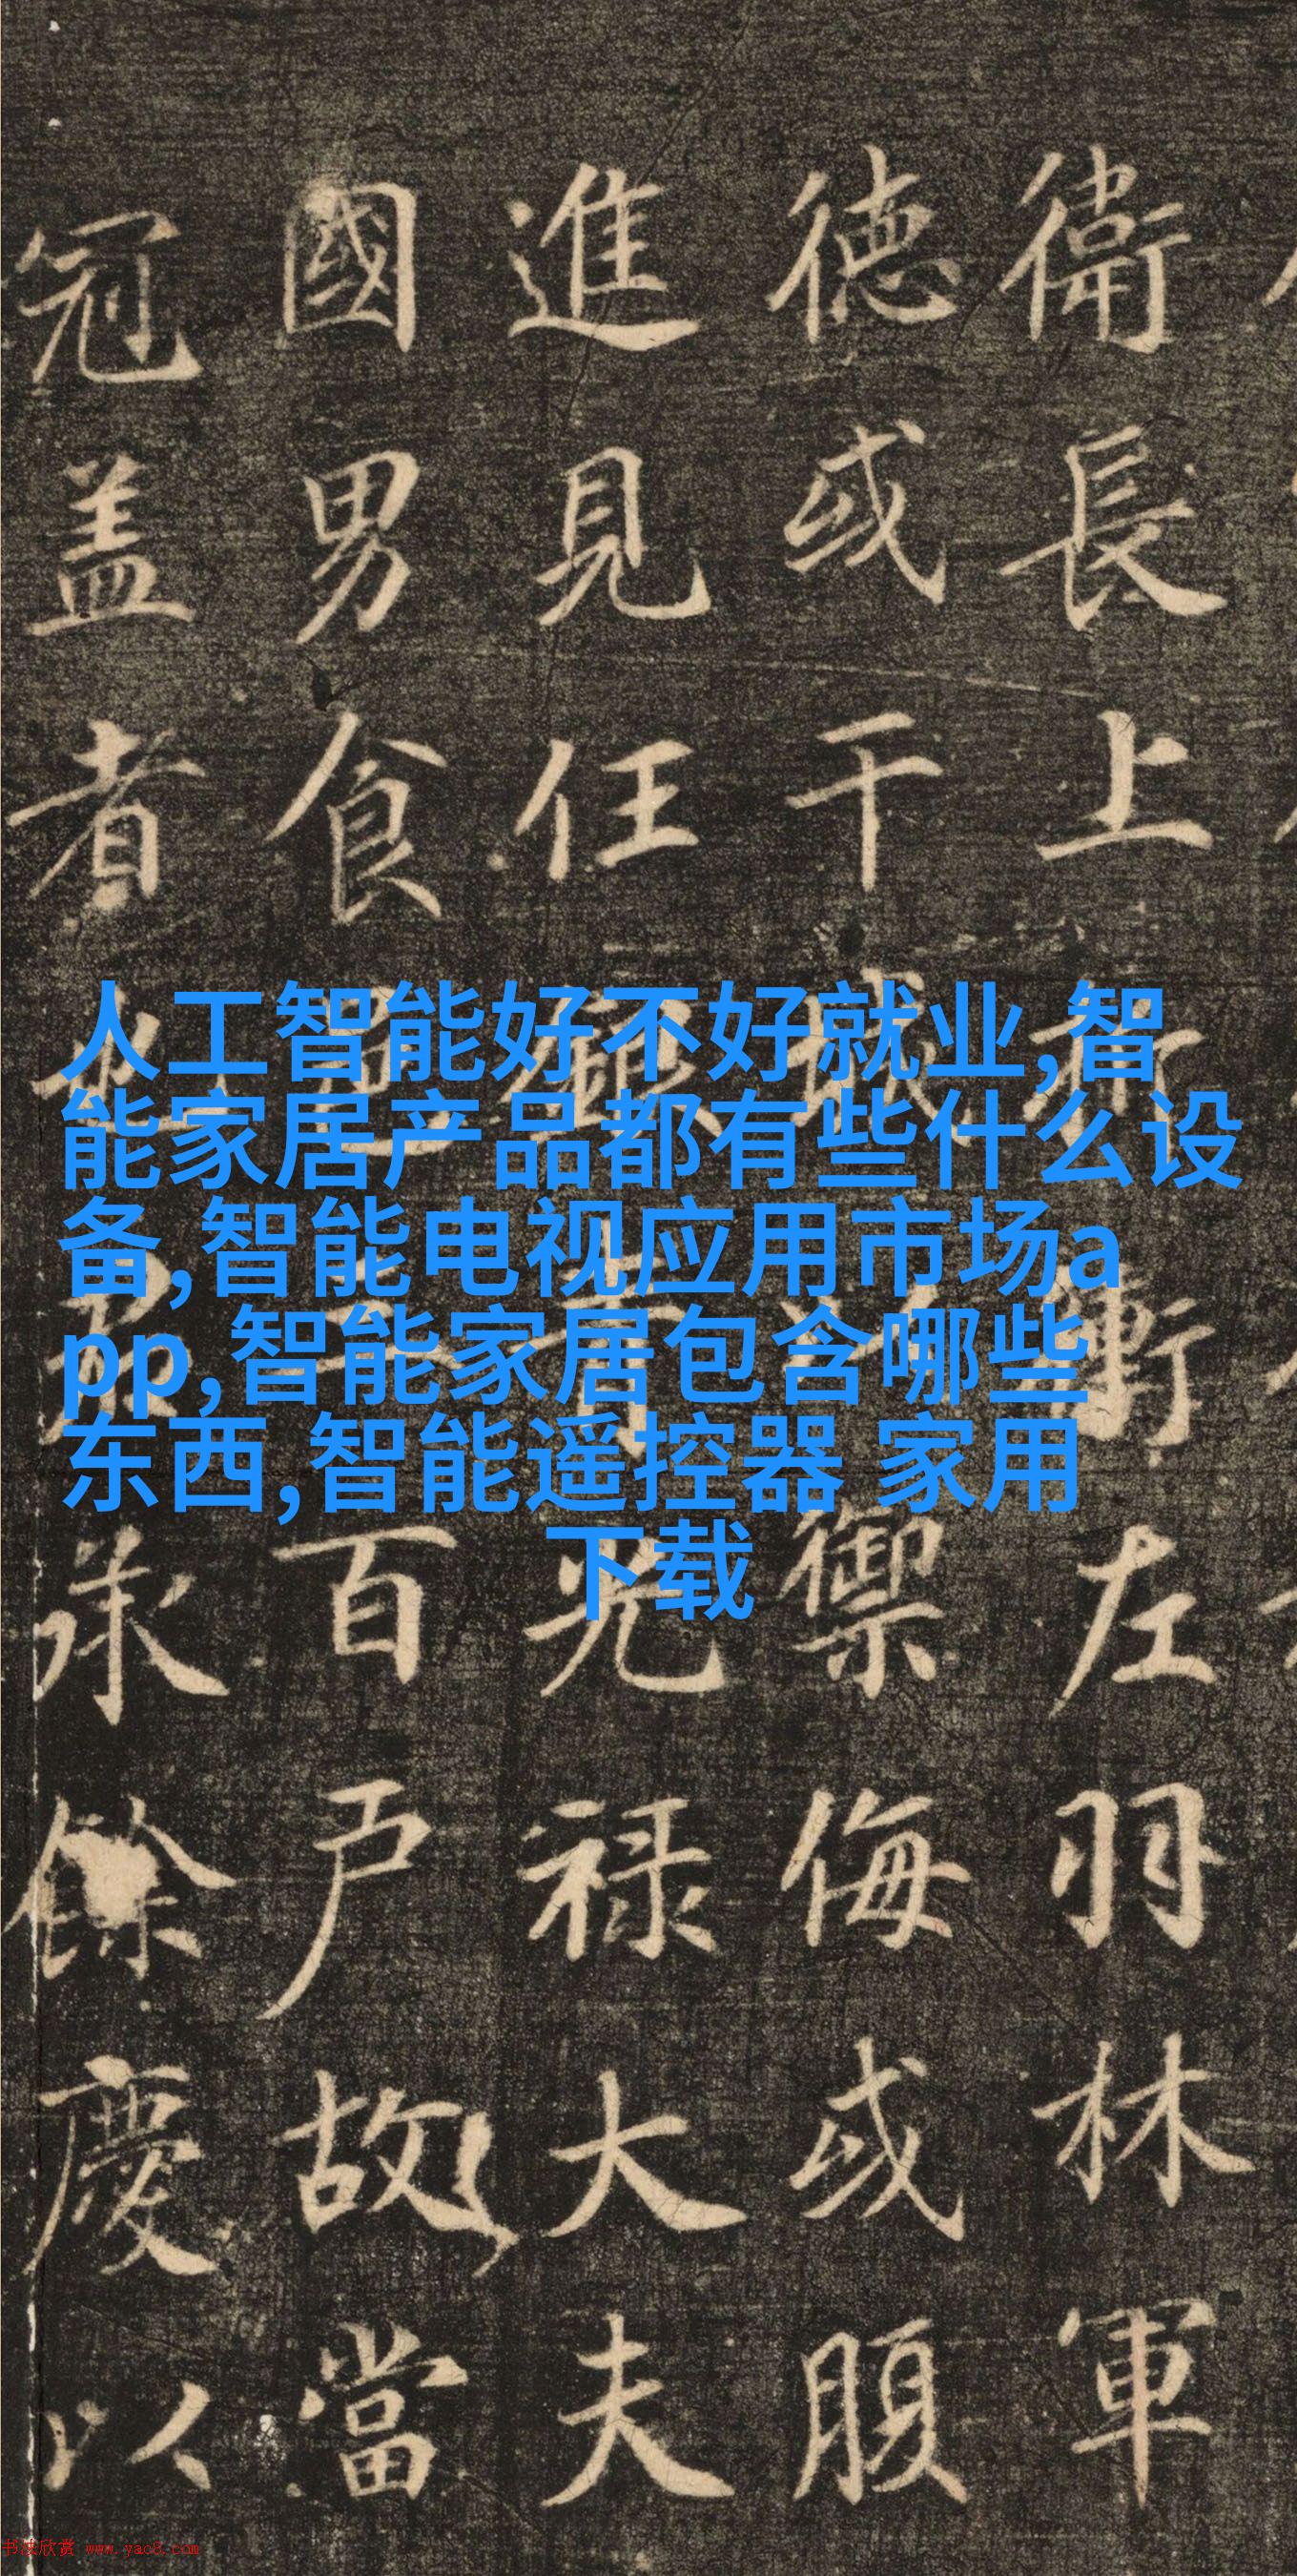 衛長上折衝左羽林軍
德或干城以禦侮或腹
進見任銀青光禄大夫
國男食邑百户故當
冠盖者也君承餘慶以
人工智能好不好就业,智
能家居产品都有些什么设
备,智能电视应用市场a
pp,智能家居包含哪些
东西,智能遥控器 家用
下载
书法欣赏 www.yac8.com